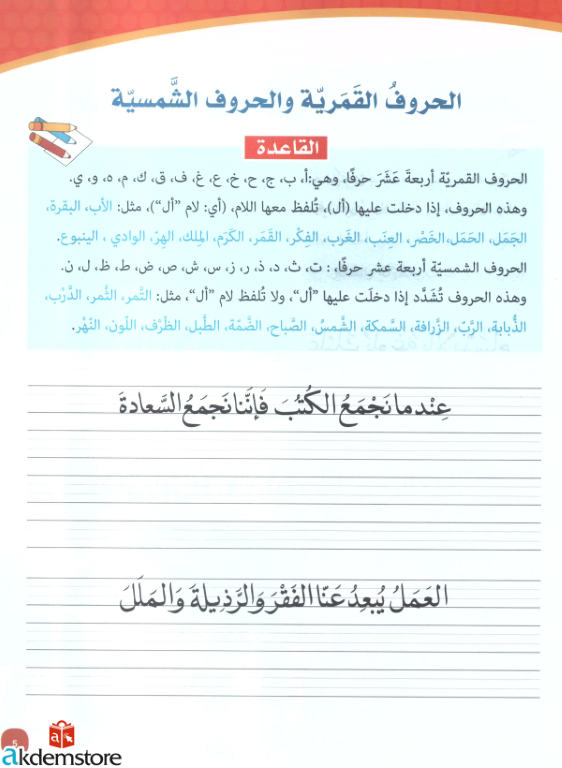 الحروفُ القَمَريّة والحروف الشَّمسيّة
القاعدة
الحروف القمريّة أربعةَ عَشَرَ حرفًا، وهي:أ، ب، ج، ح، خ، ع، غ، ف، ق، ك، م، ه، و، ي.
وهذه الحروف، إذا دخلت عليها (أل)، تُلفظ معها اللام، (أي: لام ”أل“)، مثل: الأب، البقرة،
الجَمَل، الحَمَل،الخَصْر، العِنَب، الغَرب، الفِكْر، القَمَر، الكَرَم، المِلك، الهِرّ، الوادي ، الينبوع.
الحروف الشمسيّة أربعة عشر حرفًا، : ت، ث، د، ذ، ر، ز، س، ش، ص، ض، ط، ظ، ل، ن.
وهذه الحروف تُشَدَّد إذا دخلَت عليها ”أل“، ولا تُلفظ لام ”أل“، مثل: التَّمر، الثَّمر، الدَّرْب،
الذُّبابة، الرَّبّ، الزَّرافة، السَّمكة، الشَّمسُ، الصَّباح، الضَّمّة، الطَّبل، الظَّرْف، اللّون، النّهْر.
عِنْدما نَجْمَعُ الكُتُبَ فَإنَّنا نَجمَعُ السَّعادةَ
العَمَلُ يُبعِدُ عَنّا الفَقْرَ وَالرَّذِيلةَ وَالمَلَلَ
5
akdemstore